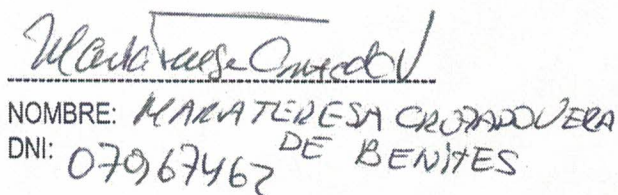 NOMBRE: MARIA TERESA CRUZADO VERA
DE BENITES
DNI: 07967462